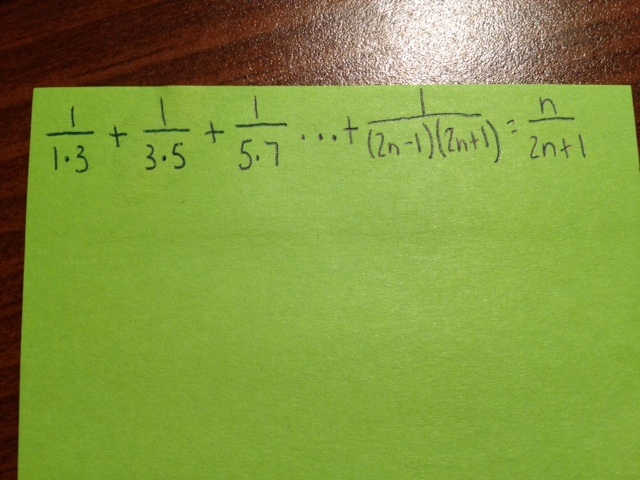 1/1·3 + 1/3·5 + 1/5·7 ...+ 1/(2n-1)(2n+1) = n/2n+1